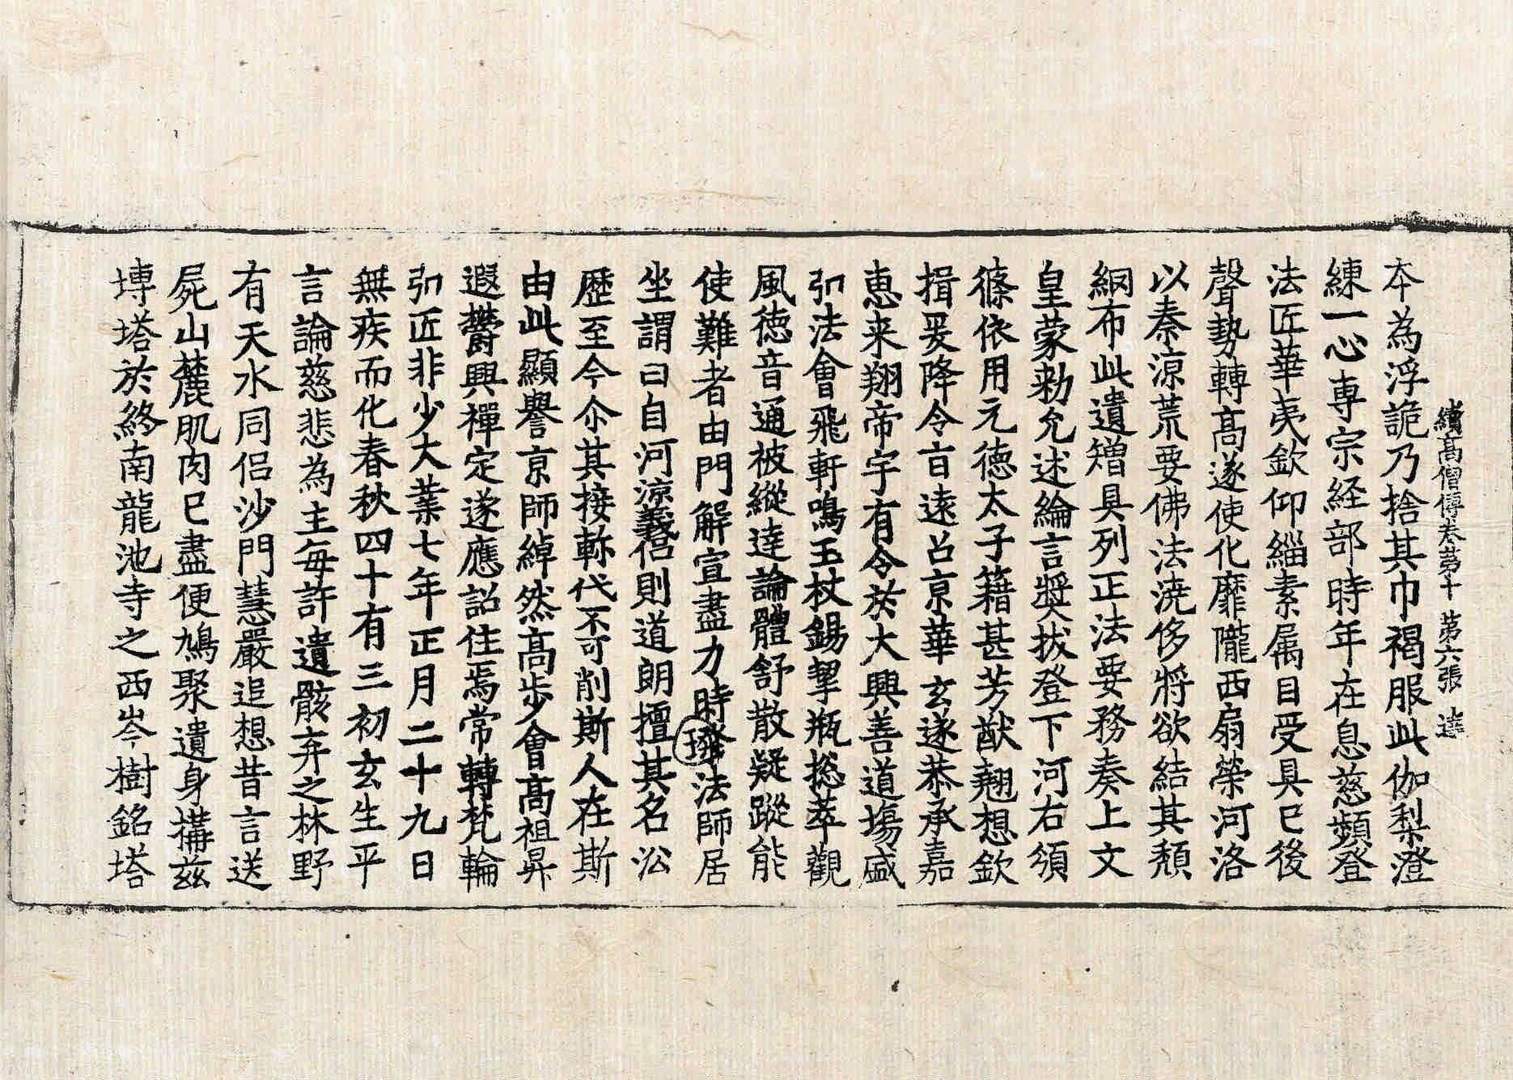 續高僧傳卷苐十 第六張 達
本為浮詭乃捨其巾褐服此伽梨澄
練一心専宗経部時年在息慈頻登
法匠華夷欽仰緇素属目受具已後
聲勢轉高遂使化靡隴西扇榮河洛
以秦涼荒要佛法澆侈將欲結其頹
綱布此遺矰具列正法要務奏上文
皇蒙勑允述綸言奬拔登下河右頒
條依用元徳太子籍甚芳猷翹想欽
揖爰降令旨遠召京華玄遂恭承嘉
惠来翔帝宇有令於大興善道場盛
弘法會飛軒鳴玉杖錫挈瓶捴萃觀
風徳音通被縱達論體舒散疑蹤能
使難者由門解宣盡力時璨法師居
坐謂曰自河涼義侶則道朗擅其名沿
歷至今尒其接軫代不可削斯人在斯
由此顯譽京師綽然高步會高祖昇
遐欝興禪定遂應詔住焉常轉梵輪
弘匠非少大業七年正月二十九日
無疾而化春秋四十有三初玄生平
言論慈悲為主每許遺骸弃之林野
有天水同侣沙門慧嚴追想昔言送
屍山麓肌肉已盡便鳩聚遺身搆茲
塼塔於終南龍池寺之西岑樹銘塔